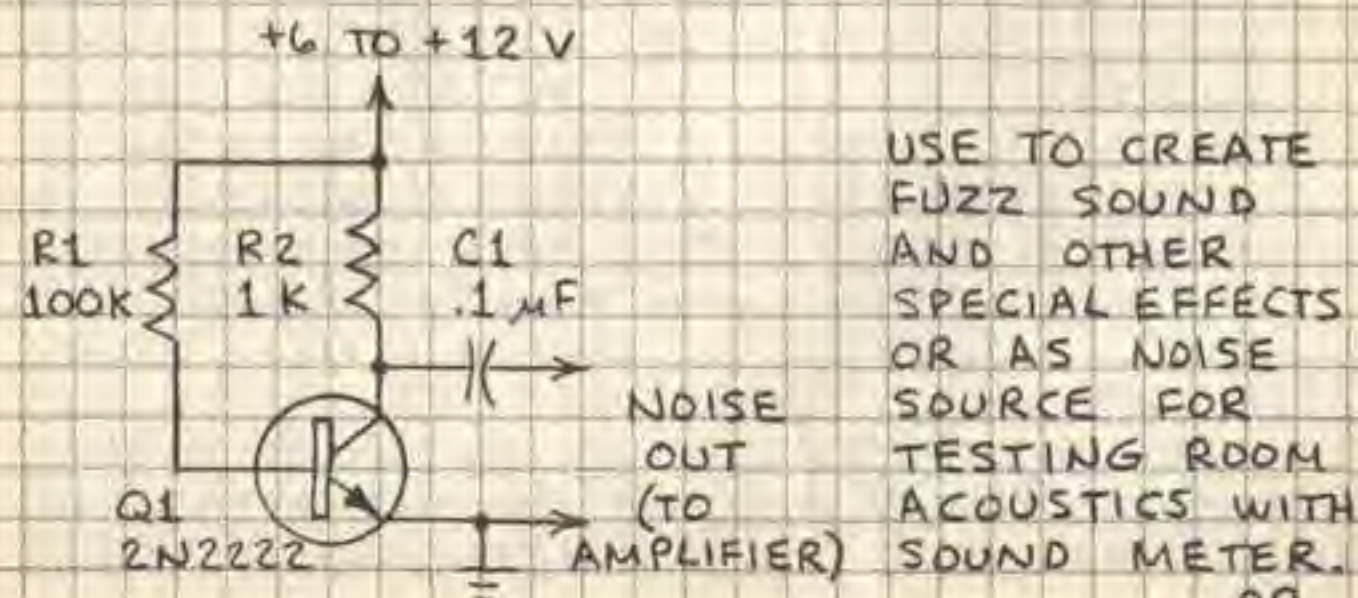 +6 TO +12 V
R1
100K
R2
1K
C1
.1 µF
Q1
2N2222
NOISE
OUT
(TO
AMPLIFIER)
USE TO CREATE
FUZZ SOUND
AND OTHER
SPECIAL EFFECTS
OR AS NOISE
SOURCE FOR
TESTING ROOM
ACOUSTICS WITH
SOUND METER.